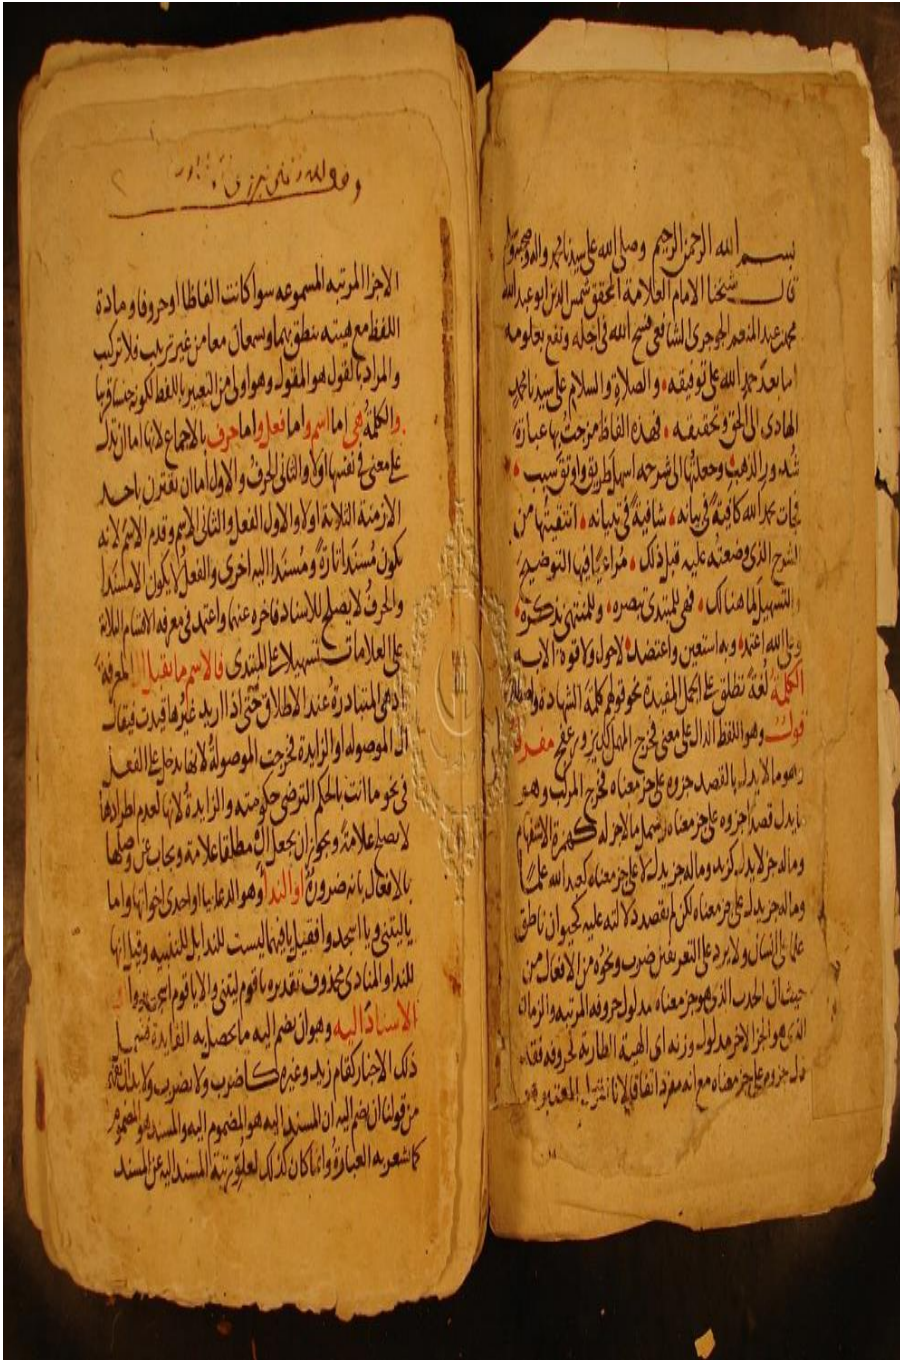 بسم الله الرحمن الرحيم وصلى الله على سيدنا محمد واله وصحبه وسلم
قال شيخنا الامام العلامة المحقق شمس الدين ابو عبد الله
محمد بن عبد المنعم الجوجري الشافعي فسح الله في اجله ونفع بعلومه
اما بعد حمد الله على توفيقه والصلاة والسلام على سيدنا محمد
الهادي الى الحق وتحقيقه فهذه الفاظ مزجت بها عبارة
شذور الذهب وجعلتها الى شرحه اسهل طريق واوثق سبب
فجات بحمد الله كافية في بابه شافية في بيانه انتقيتها من
الشرح الذي وضعته عليه قبل ذلك مراعيا فيها التوضيح
والتسهيل لما هنالك فهي للمبتدي تبصره وللمنتهي تذكرة
وعلى الله اعتمد وبه استعين واعتضد لاحول ولا قوة الا به
الكلمة لغة تطلق على الجمل المفيدة نحو قولهم كلمة الشهادة واصطلاحا
قول وهو اللفظ الدال على معنى فخرج المهمل كديز ورفعج مفرد
وهو ما لا يدل بالقصد جزوه على جز معناه فخرج المركب وهو
ما يدل قصدا جزوه على جز معناه وشمل ما لا جز له كهمزة الاستفهام
وماله جز لا يدل كزيد وماله جز يدل لا على جز معناه كعبد الله علما
وماله جز يدل على جز معناه لكن لم تقصد دلالته عليه كحيوان ناطق
علما على انسان ولا يرد على التعريفين ضرب ونحوه من الافعال من
حيث ان الحدث الذي هو جز معناه مدلول حروفه المرتبه والزمان
الذي هو الجز الاخر مدلول وزنه اى الهيئة الطارية لحروفه فقد
دل جزوه على جز معناه مع انه مفرد اتفاقا لانا نقول المعتبر هو
الاجزا المرتبه المسموعه سوا كانت الفاظا او حروفا ومادة
اللفظ مع هيئته ينطق بهما ويسمعان معا من غير ترتيب فلا تركيب
والمراد بالقول هو المقول وهو اولى من التعبير باللفظ لكونه جنسا قريبا
والكلمة هي اما اسم واما فعل واما حرف بالاجماع لانها اما ان تدل
على معنى في نفسها اولا والثاني الحرف والاول اما ان تقترن باحد
الازمنة الثلاثة اولا والاول الفعل والثاني الاسم وقدم الاسم لانه
يكون مسندا تارة ومسندا اليه اخرى والفعل لا يكون الا مسندا
والحرف لا يصلح للاسناد فاخره عنهما واعتمد في معرفة الاقسام الثلاثة
على العلامات تسهيلا على المبتدي فالاسم ما يقبل ال المعرفة
اذ هي المتبادرة عند الاطلاق حتى اذا اريد غيرها قيدت فيقال
ال الموصولة او الزايدة فخرجت الموصولة لانها تدخل على الفعل
في نحو ما انت بالحكم الترضى حكومته والزايدة لانها لعدم اطرادها
لا تصلح علامة ويجوز ان يجعل ال مطلقا علامة ويجاب عن وصلها
بالافعال بانه ضرورة او الندا وهو الدعا بيا او احدى اخواتها واما
يا ليتني ويا اسجدوا فقيل يا فيهما ليست للندا بل للتنبيه وقيل انها
للندا والمنادى محذوف تقديره يا قوم ليتني والا يا قوم اسجدوا او
الاسناد اليه وهو ان يضم اليه ما يحصل به الفايدة
ذلك الاخبار كقام زيد وغيره كاضرب ولا تضرب ولا
من قولنا ان يضم اليه ان المسند اليه هو المضموم اليه والمسند هو المضموم
كما تشعر به العبارة وانما كان كذلك لعلو رتبة المسند اليه عن المسند